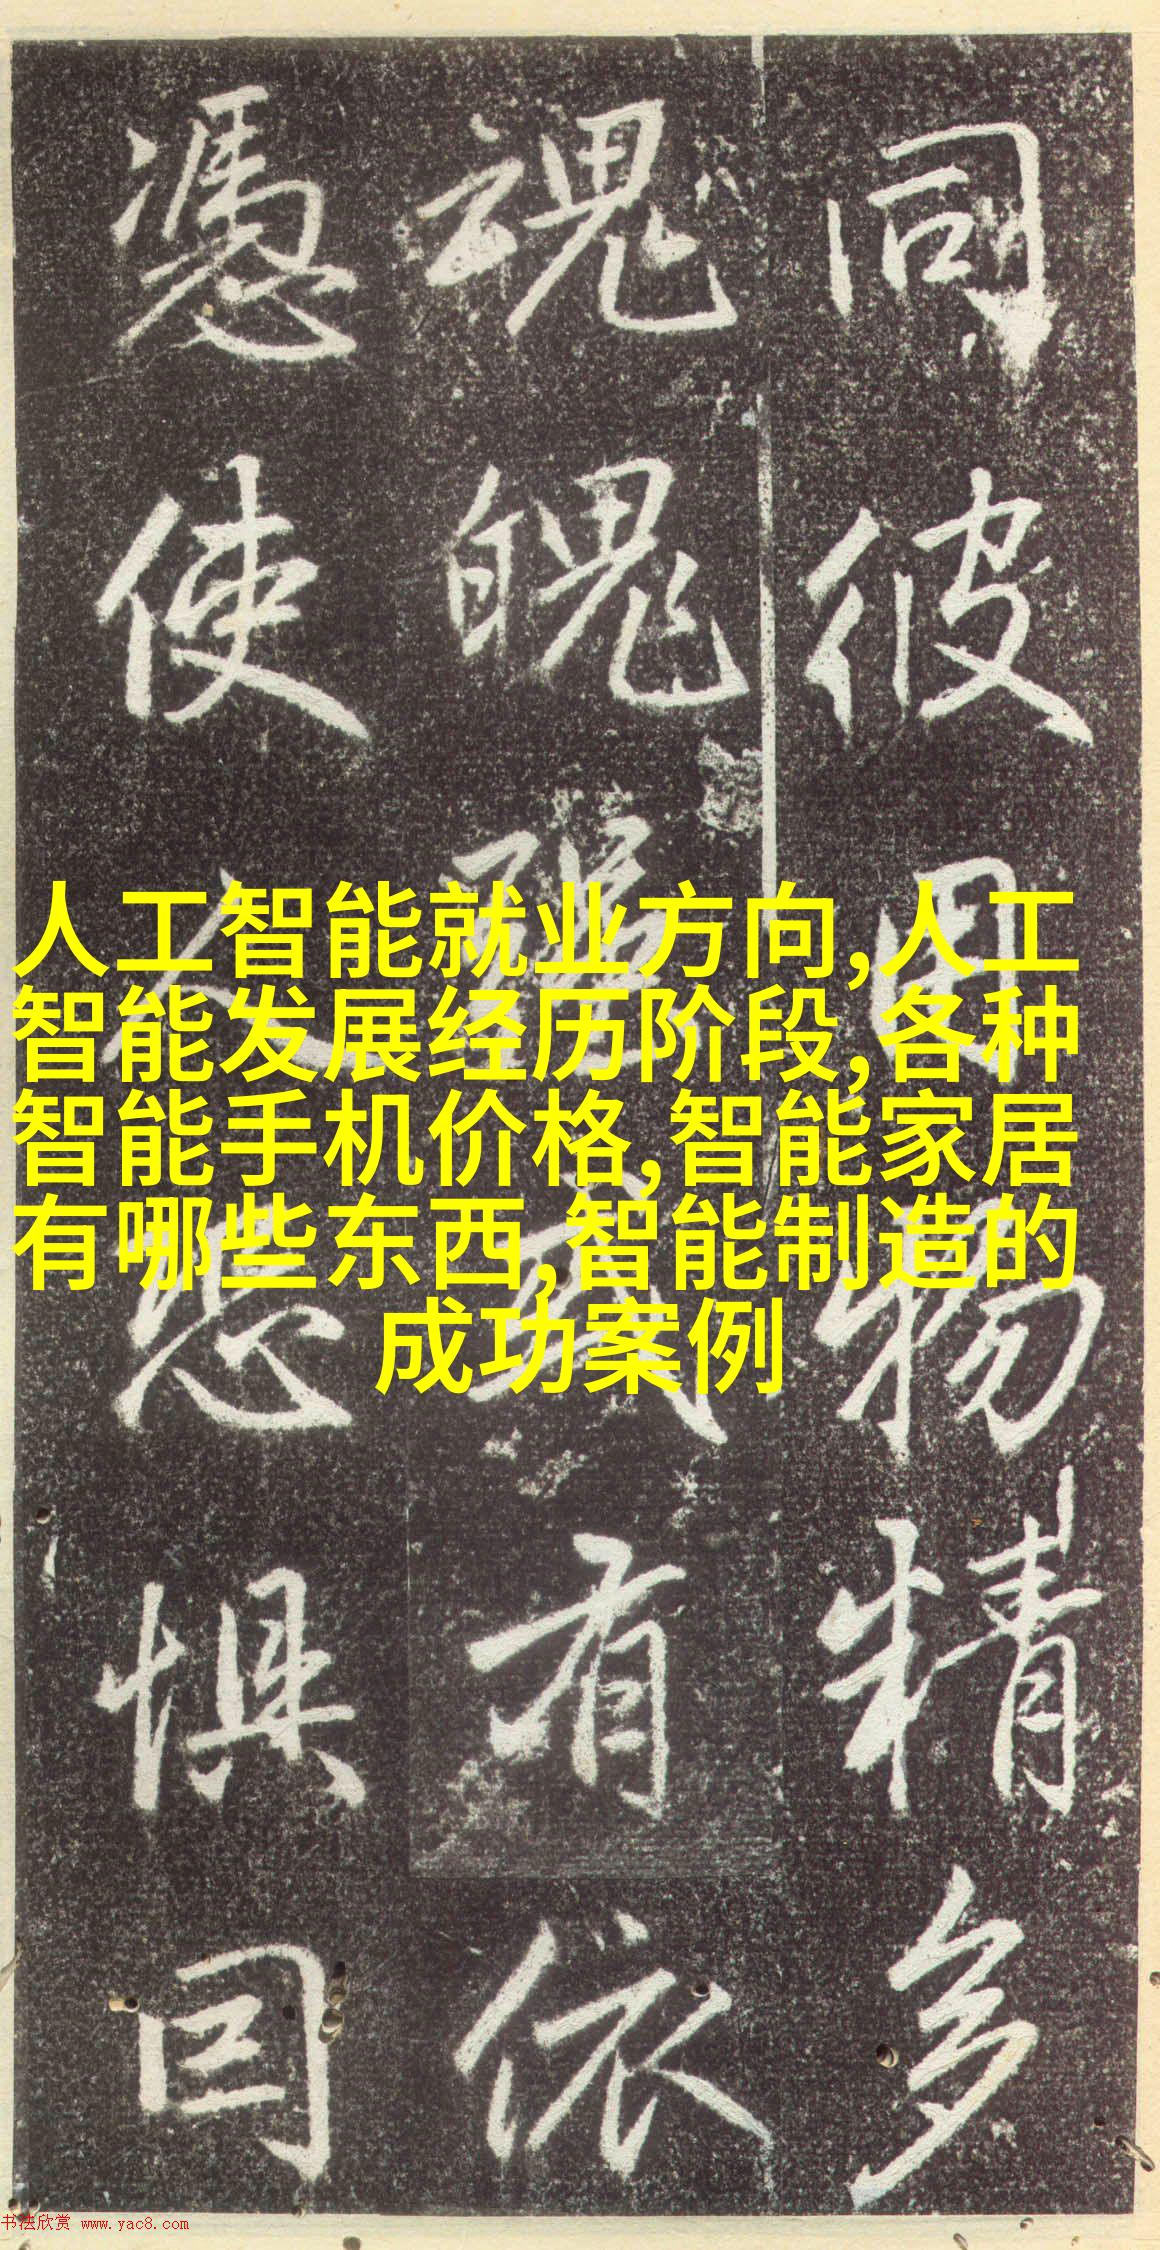 同彼因物精多
魂魄强或有依
憑使人恐惧目
人工智能就业方向,人工
智能发展经历阶段,各种
智能手机价格,智能家居
有哪些东西,智能制造的
成功案例
书法欣赏 www.yac8.com